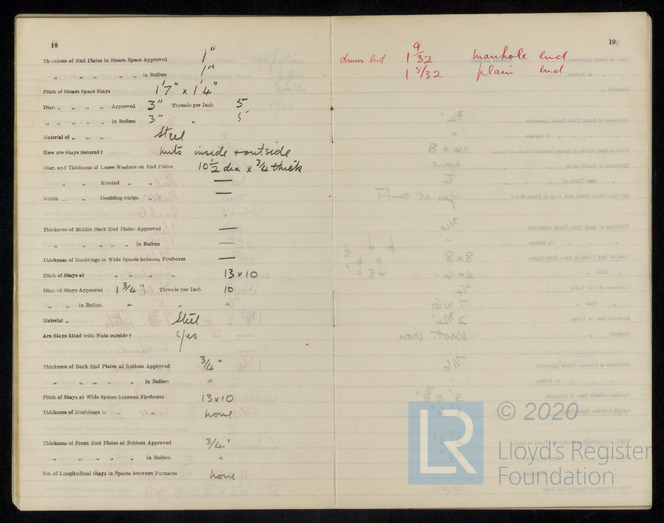 18
Thickness of End Plates in Steam Space Approved 1"
„ „ „ „ „ in Boilers 1"
Pitch of Steam Space Stays 1'7" x 1'4"
Diar. „ „ „ „ Approved 3" Threads per Inch 5
„ „ „ „ in Boilers 3" „ 5
Material of „ „ „ Steel
How are Stays Secured? Nuts inside + outside
Diar. and Thickness of Loose Washers on End Plates 10½ dia x ¾ thick
„ „ Riveted „ „ —
Width „ „ Doubling Strips „ —
Thickness of Middle Back End Plates Approved —
„ „ „ „ in Boilers —
Thickness of Doublings in Wide Spaces between Fireboxes —
Pitch of Stays at „ „ „ 13 x 10
Diar. of Stays Approved 1 ¾" Threads per Inch 10
„ „ in Boilers „ „ „
Material „ Steel
Are Stays fitted with Nuts outside? Yes
Thickness of Back End Plates at Bottom Approved ¾"
„ „ „ „ in Boilers "
Pitch of Stays at Wide Spaces between Fireboxes 13 x 10
Thickness of Doublings in „ „ none
Thickness of Front End Plates at Bottom Approved ¾"
„ „ „ „ in Boilers "
No. of Longitudinal Stays in Spaces between Furnaces none
19
1 9/32 manhole end
1 5/32 plain end
LR
© 2020
Lloyd's Register
Foundation